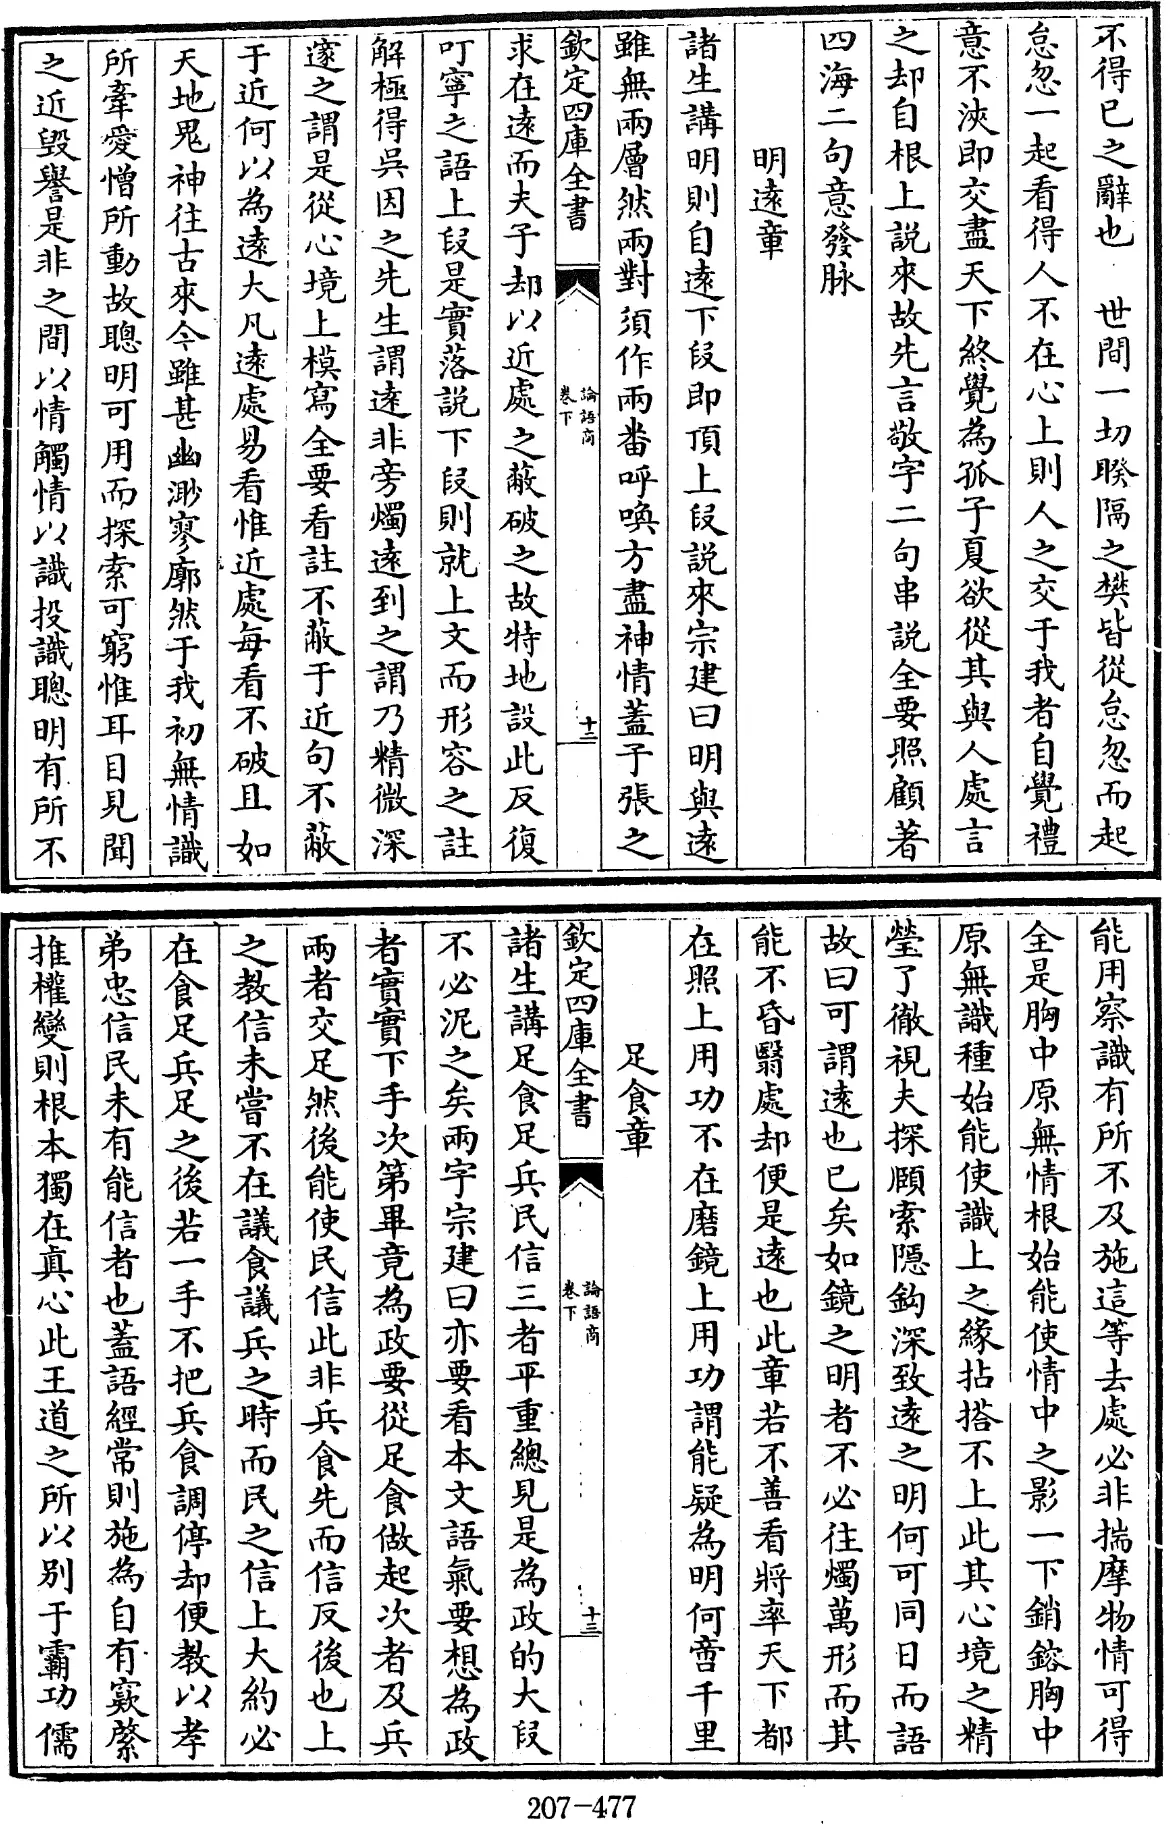 不得已之辭也　世間一切暌隔之樊皆從怠忽而起
怠忽一起看得人不在心上則人之交于我者自覺禮
意不浹即交盡天下終覺為孤子夏欲從其與人處言
之却自根上説來故先言敬字二句串説全要照顧著
四海二句意發脉
明遠章
諸生講明則自遠下段即頂上段説來宗建曰明與遠
雖無兩層然兩對須作兩畨呼喚方盡神情蓋子張之
欽定四庫全書
論語商
卷下
十二
求在遠而夫子却以近處之蔽破之故特地設此反復
叮寧之語上段是實落説下段則就上文而形容之註
解極得吳因之先生謂遠非旁燭遠到之謂乃精微深
邃之謂是從心境上模寫全要看註不蔽于近句不蔽
于近何以為遠大凡遠處易看惟近處每看不破且如
天地鬼神往古來今雖甚幽渺寥廓然于我初無情識
所牽愛憎所動故聰明可用而探索可窮惟耳目見聞
之近毀譽是非之間以情觸情以識投識聰明有所不
能用察識有所不及施這等去處必非揣摩物情可得
全是胸中原無情根始能使情中之影一下銷鎔胸中
原無識種始能使識上之緣拈搭不上此其心境之精
瑩了徹視夫探賾索隱鈎深致遠之明何可同日而語
故曰可謂遠也已矣如鏡之明者不必往燭萬形而其
能不昏翳處却便是遠也此章若不善看將率天下都
在照上用功不在磨鏡上用功謂能疑為明何啻千里
足食章
欽定四庫全書
論語商
卷下
十三
諸生講足食足兵民信三者平重總見是為政的大段
不必泥之矣兩字宗建曰亦要看本文語氣要想為政
者實實下手次第畢竟為政要從足食做起次者及兵
兩者交足然後能使民信此非兵食先而信反後也上
之教信未嘗不在議食議兵之時而民之信上大約必
在食足兵足之後若一手不把兵食調停却便教以孝
弟忠信民未有能信者也蓋語經常則施為自有窾綮
推權變則根本獨在真心此王道之所以別于霸功儒
207-477